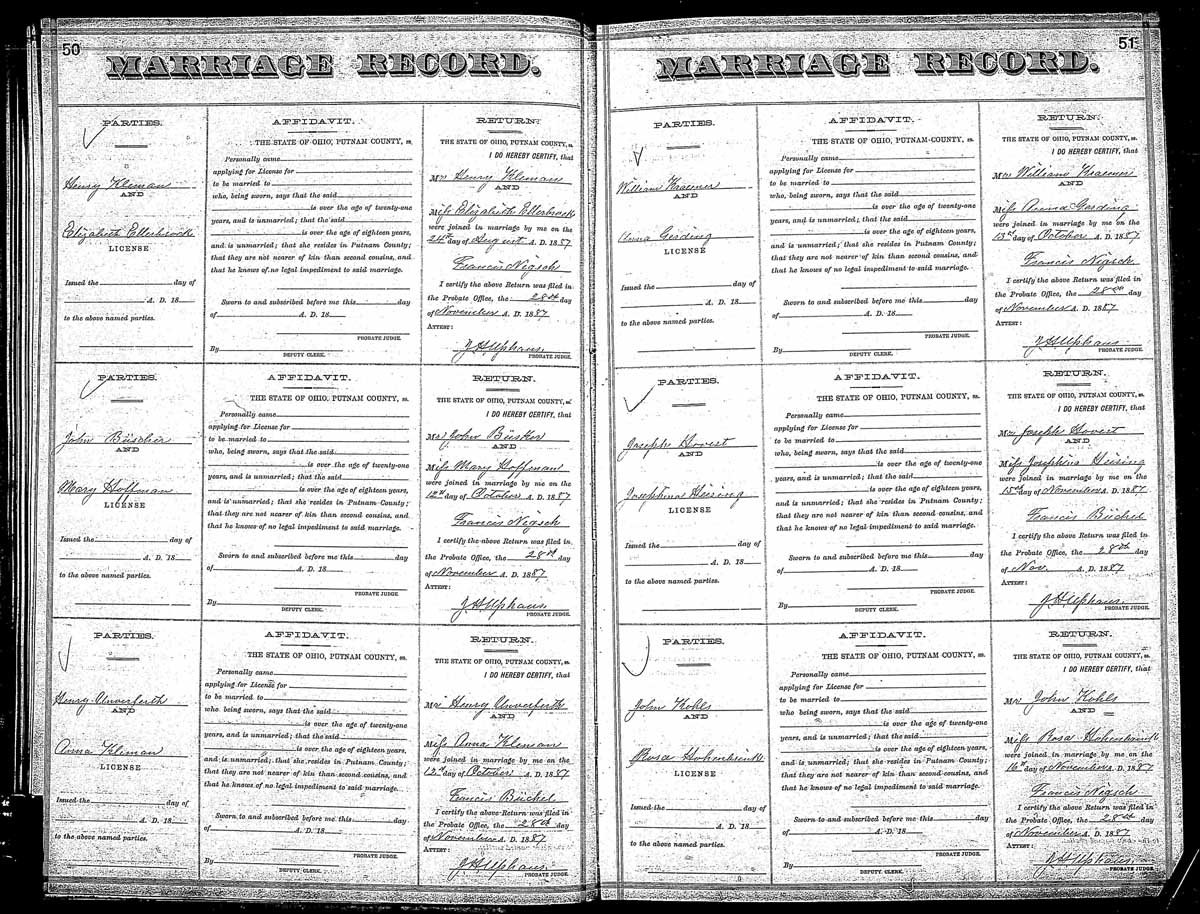 50
MARRIAGE RECORD.
PARTIES.
Henry Kleman
AND
Elizabeth Ellerbrock
LICENSE
Issued the day of
A. D. 18
to the above named parties.
AFFIDAVIT.
THE STATE OF OHIO, PUTNAM COUNTY, ss.
Personally came
applying for License for
to be married to
who, being sworn, says that the said
is over the age of twenty-one
years, and is unmarried; that the said
is over the age of eighteen years,
and is unmarried; that she resides in Putnam County;
that they are not nearer of kin than second cousins, and
that he knows of no legal impediment to said marriage.
Sworn to and subscribed before me this day
of A. D. 18
PROBATE JUDGE.
By
DEPUTY CLERK.
RETURN.
THE STATE OF OHIO, PUTNAM COUNTY, ss.
I DO HEREBY CERTIFY, that
Mr. Henry Kleman
AND
Miss Elizabeth Ellerbrock
were joined in marriage by me on the
24th day of August A. D. 1887
Francis Nigsch
I certify the above Return was filed in
the Probate Office, the 28th day
of November A. D. 1887
ATTEST:
J. H. Uphaus
PROBATE JUDGE.
PARTIES.
John Büscher
AND
Mary Hoffman
LICENSE
Issued the day of
A. D. 18
to the above named parties.
AFFIDAVIT.
THE STATE OF OHIO, PUTNAM COUNTY, ss.
Personally came
applying for License for
to be married to
who, being sworn, says that the said
is over the age of twenty-one
years, and is unmarried; that the said
is over the age of eighteen years,
and is unmarried; that she resides in Putnam County;
that they are not nearer of kin than second cousins, and
that he knows of no legal impediment to said marriage.
Sworn to and subscribed before me this day
of A. D. 18
PROBATE JUDGE.
By
DEPUTY CLERK.
RETURN.
THE STATE OF OHIO, PUTNAM COUNTY, ss.
I DO HEREBY CERTIFY, that
Mr. John Büsker
AND
Miss Mary Hoffman
were joined in marriage by me on the
12th day of October A. D. 1887
Francis Nigsch
I certify the above Return was filed in
the Probate Office, the 28th day
of November A. D. 1887
ATTEST:
J. H. Uphaus
PROBATE JUDGE.
PARTIES.
Henry Unverferth
AND
Anna Kleman
LICENSE
Issued the day of
A. D. 18
to the above named parties.
AFFIDAVIT.
THE STATE OF OHIO, PUTNAM COUNTY, ss.
Personally came
applying for License for
to be married to
who being sworn, says that the said
is over the age of twenty-one
years, and is unmarried; that the said
is over the age of eighteen years,
and is unmarried; that she resides in Putnam County;
that they are not nearer of kin than second cousins, and
that he knows of no legal impediment to said marriage.
Sworn to and subscribed before me this day
of A. D. 18
PROBATE JUDGE.
By
DEPUTY CLERK.
RETURN.
THE STATE OF OHIO, PUTNAM COUNTY, ss.
I DO HEREBY CERTIFY, that
Mr. Henry Unverferth
AND
Miss Anna Kleman
were joined in marriage by me on the
12th day of October A. D. 1887
Francis Büchel
I certify the above Return was filed in
the Probate Office, the 28th day
of November A. D. 1887
ATTEST:
J. H. Uphaus
PROBATE JUDGE.
51
MARRIAGE RECORD.
PARTIES.
William Kraemer
AND
Anna Gerding
LICENSE
Issued the day of
A. D. 18
to the above named parties.
AFFIDAVIT.
THE STATE OF OHIO, PUTNAM COUNTY, ss.
Personally came
applying for License for
to be married to
who, being sworn, says that the said
is over the age of twenty-one
years, and is unmarried; that the said
is over the age of eighteen years,
and is unmarried; that she resides in Putnam County;
that they are not nearer of kin than second cousins, and
that he knows of no legal impediment to said marriage.
Sworn to and subscribed before me this day
of A. D. 18
PROBATE JUDGE.
By
DEPUTY CLERK.
RETURN.
THE STATE OF OHIO, PUTNAM COUNTY, ss.
I DO HEREBY CERTIFY, that
Mr. William Kraemer
AND
Miss Anna Gerding
were joined in marriage by me on the
13th day of October A. D. 1887
Francis Nigsch
I certify the above Return was filed in
the Probate Office, the 28th day
of November A. D. 1887
ATTEST:
J. H. Uphaus
PROBATE JUDGE.
PARTIES.
Joseph Hovest
AND
Josephina Heising
LICENSE
Issued the day of
A. D. 18
to the above named parties.
AFFIDAVIT.
THE STATE OF OHIO, PUTNAM COUNTY, ss.
Personally came
applying for License for
to be married to
who, being sworn, says that the said
is over the age of twenty-one
years, and is unmarried; that the said
is over the age of eighteen years,
and is unmarried; that she resides in Putnam County;
that they are not nearer of kin than second cousins, and
that he knows of no legal impediment to said marriage.
Sworn to and subscribed before me this day
of A. D. 18
PROBATE JUDGE.
By
DEPUTY CLERK.
RETURN.
THE STATE OF OHIO, PUTNAM COUNTY, ss.
I DO HEREBY CERTIFY, that
Mr. Joseph Hovest
AND
Miss Josephina Heising
were joined in marriage by me on the
15th day of November A. D. 1887
Francis Büchel
I certify the above Return was filed in
the Probate Office, the 28th day
of Nov. A. D. 1887
ATTEST:
J. H. Uphaus
PROBATE JUDGE.
PARTIES.
John Kohls
AND
Rosa Hohenbrink
LICENSE
Issued the day of
A. D. 18
to the above named parties.
AFFIDAVIT.
THE STATE OF OHIO, PUTNAM COUNTY, ss.
Personally came
applying for License for
to be married to
who being sworn, says that the said
is over the age of twenty-one
years, and is unmarried; that the said
is over the age of eighteen years,
and is unmarried; that she resides in Putnam County;
that they are not nearer of kin than second cousins, and
that he knows of no legal impediment to said marriage.
Sworn to and subscribed before me this day
of A. D. 18
PROBATE JUDGE.
By
DEPUTY CLERK.
RETURN.
THE STATE OF OHIO, PUTNAM COUNTY, ss.
I DO HEREBY CERTIFY, that
Mr. John Kohls
AND
Miss Rosa Hohenbrink
were joined in marriage by me on the
16th day of November A. D. 1887
Francis Nigsch
I certify the above Return was filed in
the Probate Office, the 28th day
of November A. D. 1887
ATTEST:
J. H. Uphaus
PROBATE JUDGE.